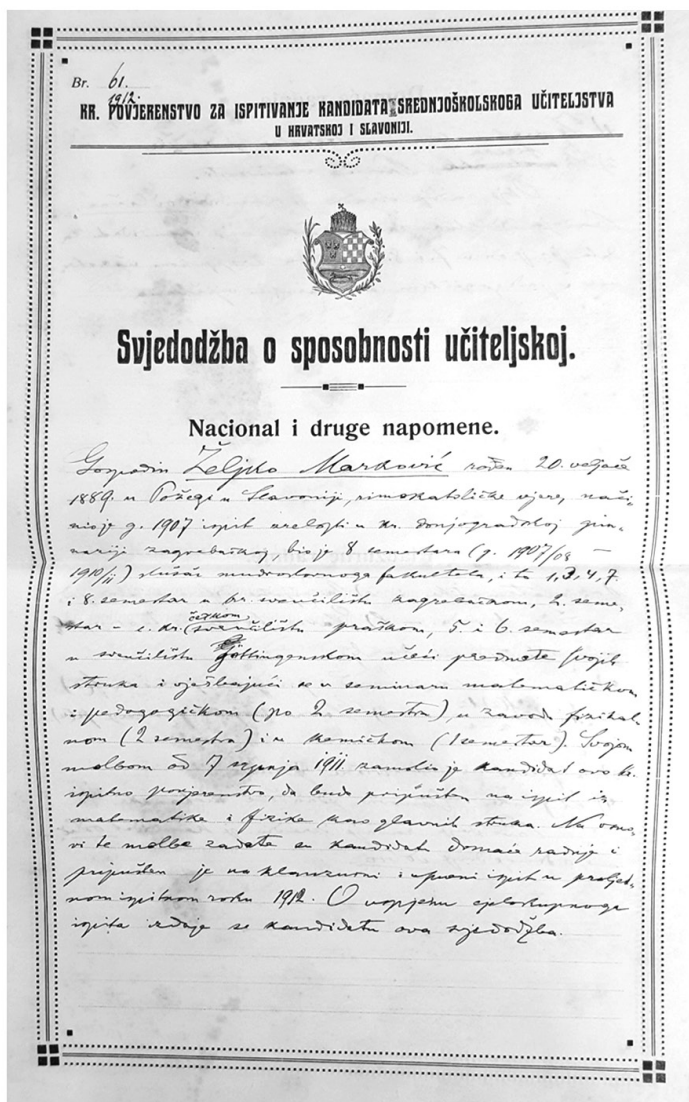 Br. 61.
1912.
KR. POVJERENSTVO ZA ISPITIVANJE KANDIDATA SREDNJOŠKOLSKOGA UČITELJSTVA
U HRVATSKOJ I SLAVONIJI.
Svjedodžba o sposobnosti učiteljskoj.
Nacional i druge napomene.
Gospodin Željko Marković rođen 20. veljače
1889. u Požegi u Slavoniji, rimokatoličke vjere, uči-
nio je g. 1907 ispit zrelosti u kr. donjogradskoj gim-
naziji zagrebačkoj, bio je 8 semestara (g. 1907/08 –
1910/11.) slušač mudroslovnoga fakulteta, i to 1, 3, 4, 7.
i 8. semestar u kr. sveučilištu zagrebačkom, 2. seme-
star – c. kr. češkom sveučilištu praškom, 5. i 6. semestar
u sveučilištu Göttingenskom učeći predmete svojih
struka i vježbajući se u seminaru matematičkom
i pedagogičkom (po 2 semestra), u zavodu fizikal-
nom (2 semestra) i u kemičkom (1 semestar). Svojom
molbom od 7 srpnja 1911. zamolio je kandidat ovo kr.
ispitno povjerenstvo, da bude pripušten na ispit iz
matematike i fizike kao glavnih struka. Na osno-
vi te molbe zadate su kandidatu domaće radnje i
pripušten je na klauzurni i usmeni ispit u proljet-
nom ispitnom roku 1912. O uspjehu cjelokupnoga
ispita izdaje se kandidatu ova svjedodžba.